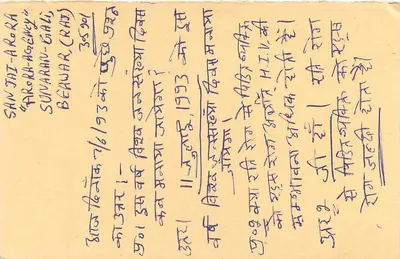 SANJAY-ARORA
"ARORA-AGENCY"
SUNARAN-GALI,
BEAWAR (RAJ)
305901
आज दिनांक 7/6/93 को पूछे प्रश्न
का उत्तर।-
प्र01 इस वर्ष विश्व जनसंख्या दिवस
कब मनाया जायेगा?
उत्तर। 11 जुलाई, 1993 को इस
वर्ष विश्व जनसंख्या दिवस मनाया
जायेगा।
प्र02 क्या टी बी रोग से पीड़ित व्यक्ति
को एड्स रोग अर्थात H I V की
सम्भावना अधिक होती है।
उत्तर जी हाँ। टी बी रोग
से पीड़ित व्यक्ति को एड्स
रोग जल्दी होता है।